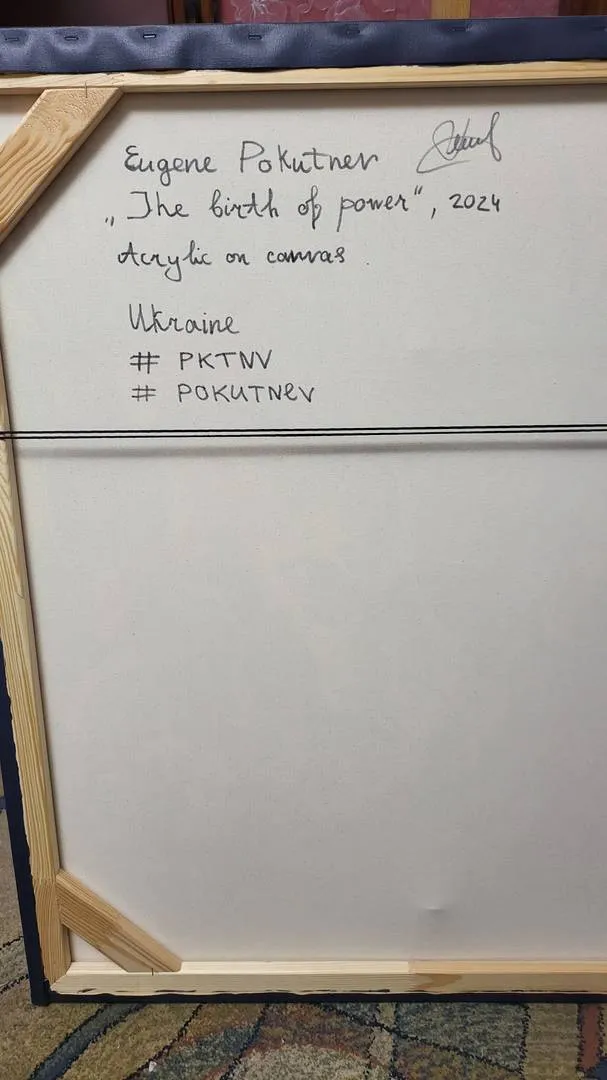 Eugene Pokutnev
„The birth of power“, 2024
Acrylic on canvas
Ukraine
# PKTNV
# POKUTNev